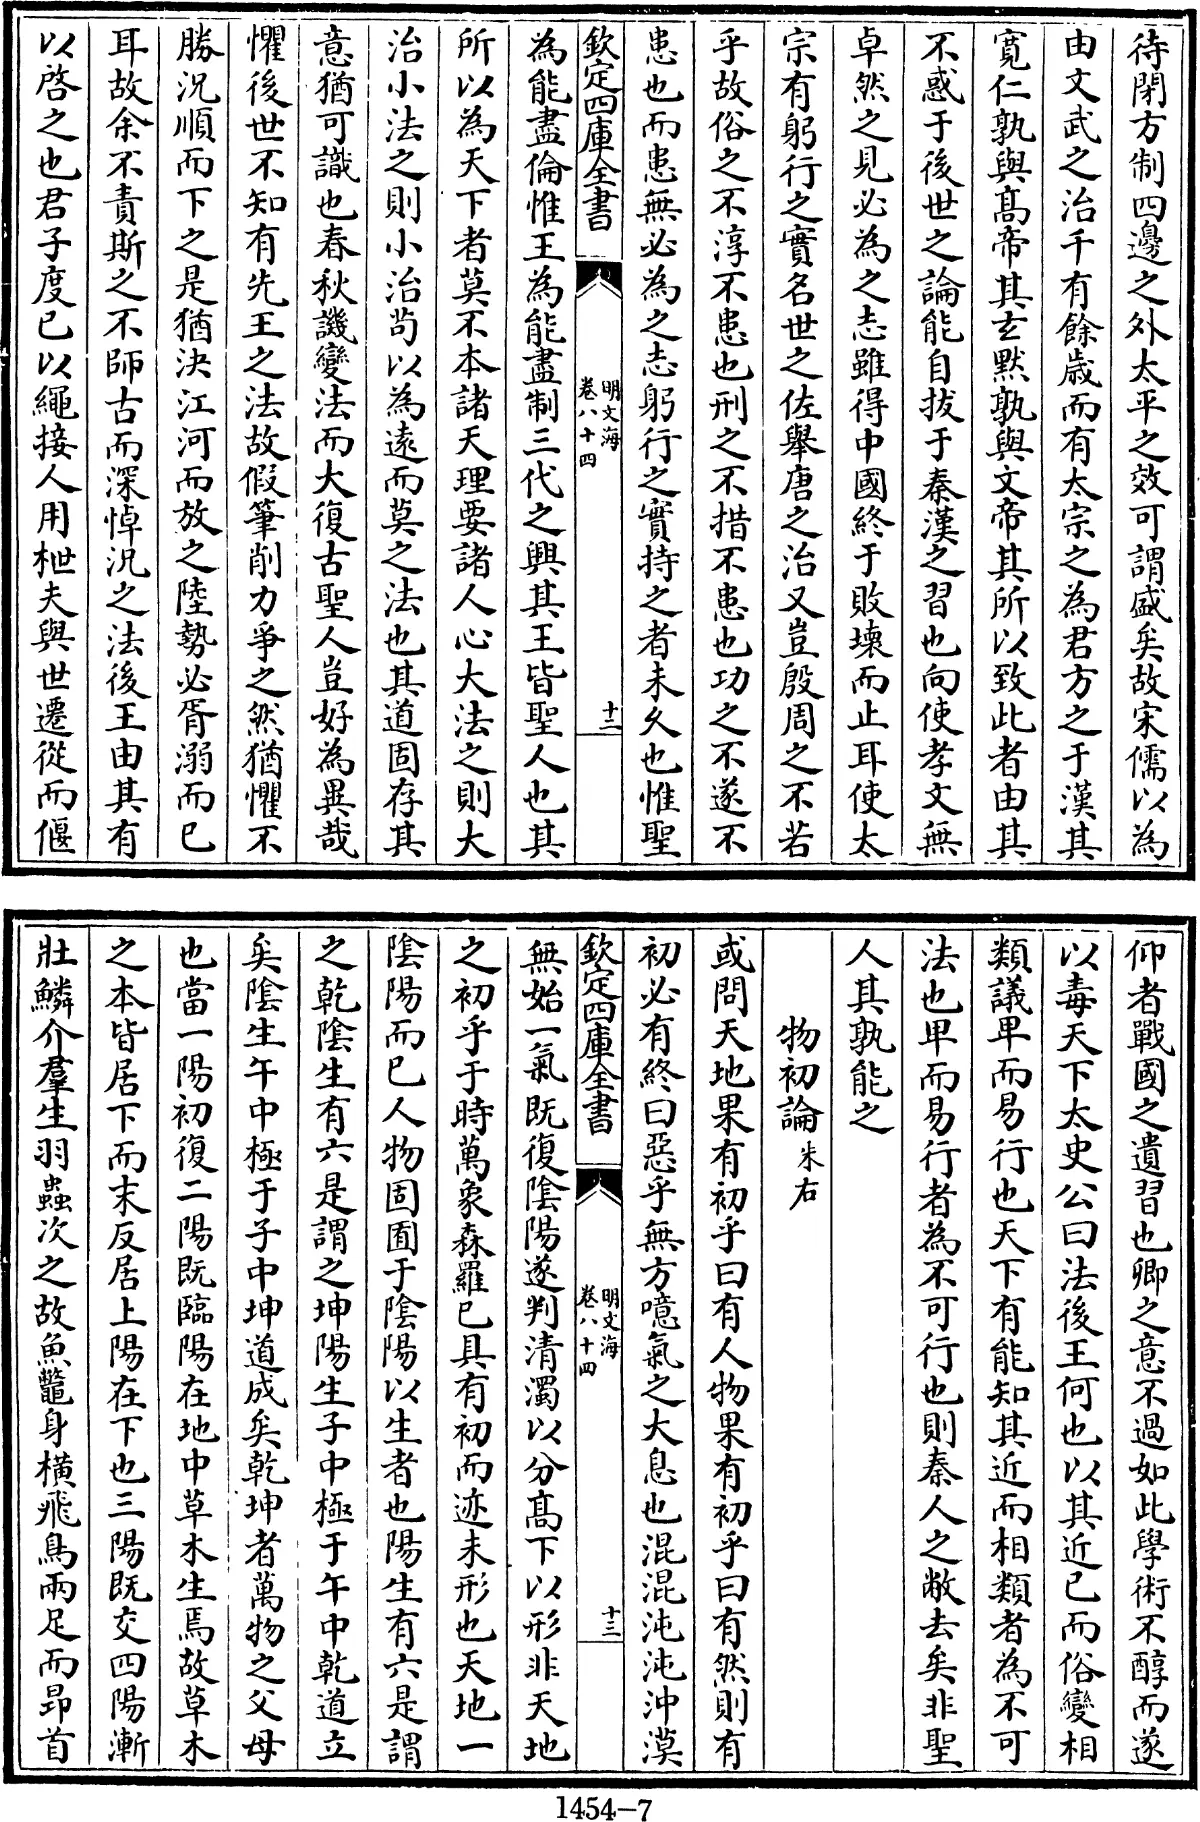 待閉方制四邊之外太平之效可謂盛矣故宋儒以為
由文武之治千有餘歲而有太宗之為君方之于漢其
寬仁孰與髙帝其玄黙孰與文帝其所以致此者由其
不惑于後世之論能自拔于秦漢之習也向使孝文無
卓然之見必為之志雖得中國終于敗壞而止耳使太
宗有躬行之實名世之佐舉唐之治又豈殷周之不若
乎故俗之不淳不患也刑之不措不患也功之不遂不
患也而患無必為之志躬行之實持之者未久也惟聖
欽定四庫全書
明文海
卷八十四
十二
為能盡倫惟王為能盡制三代之興其王皆聖人也其
所以為天下者莫不本諸天理要諸人心大法之則大
治小法之則小治茍以為遠而莫之法也其道固存其
意猶可識也春秋譏變法而大復古聖人豈好為異哉
懼後世不知有先王之法故假筆削力爭之然猶懼不
勝況順而下之是猶決江河而放之陸勢必胥溺而已
耳故余不責斯之不師古而深悼況之法後王由其有
以啓之也君子度已以繩接人用枻夫與世遷從而偃
仰者戰國之遺習也卿之意不過如此學術不醇而遂
以毒天下太史公曰法後王何也以其近已而俗變相
類議卑而易行也天下有能知其近而相類者為不可
法也卑而易行者為不可行也則秦人之敝去矣非聖
人其孰能之
物初論 朱右
或問天地果有初乎曰有人物果有初乎曰有然則有
初必有終曰惡乎無方噫氣之大息也混混沌沌沖漠
欽定四庫全書
明文海
卷八十四
十三
無始一氣既復陰陽遂判清濁以分髙下以形非天地
之初乎于時萬象森羅已具有初而迹未形也天地一
陰陽而已人物固囿于陰陽以生者也陽生有六是謂
之乾陰生有六是謂之坤陽生子中極于午中乾道立
矣陰生午中極于子中坤道成矣乾坤者萬物之父母
也當一陽初復二陽既臨陽在地中草木生焉故草木
之本皆居下而末反居上陽在下也三陽既交四陽漸
壯鱗介羣生羽蟲次之故魚鼈身橫飛鳥兩足而昻首
1454-7